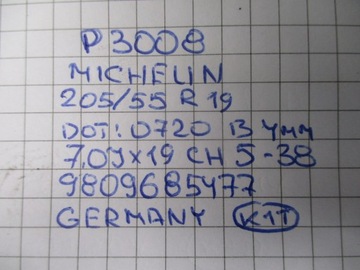 P 3008
MICHELIN
205/55 R 19
DOT: 0720 B 4MM
7.0J x 19 CH 5-38
9809685477
GERMANY K1T